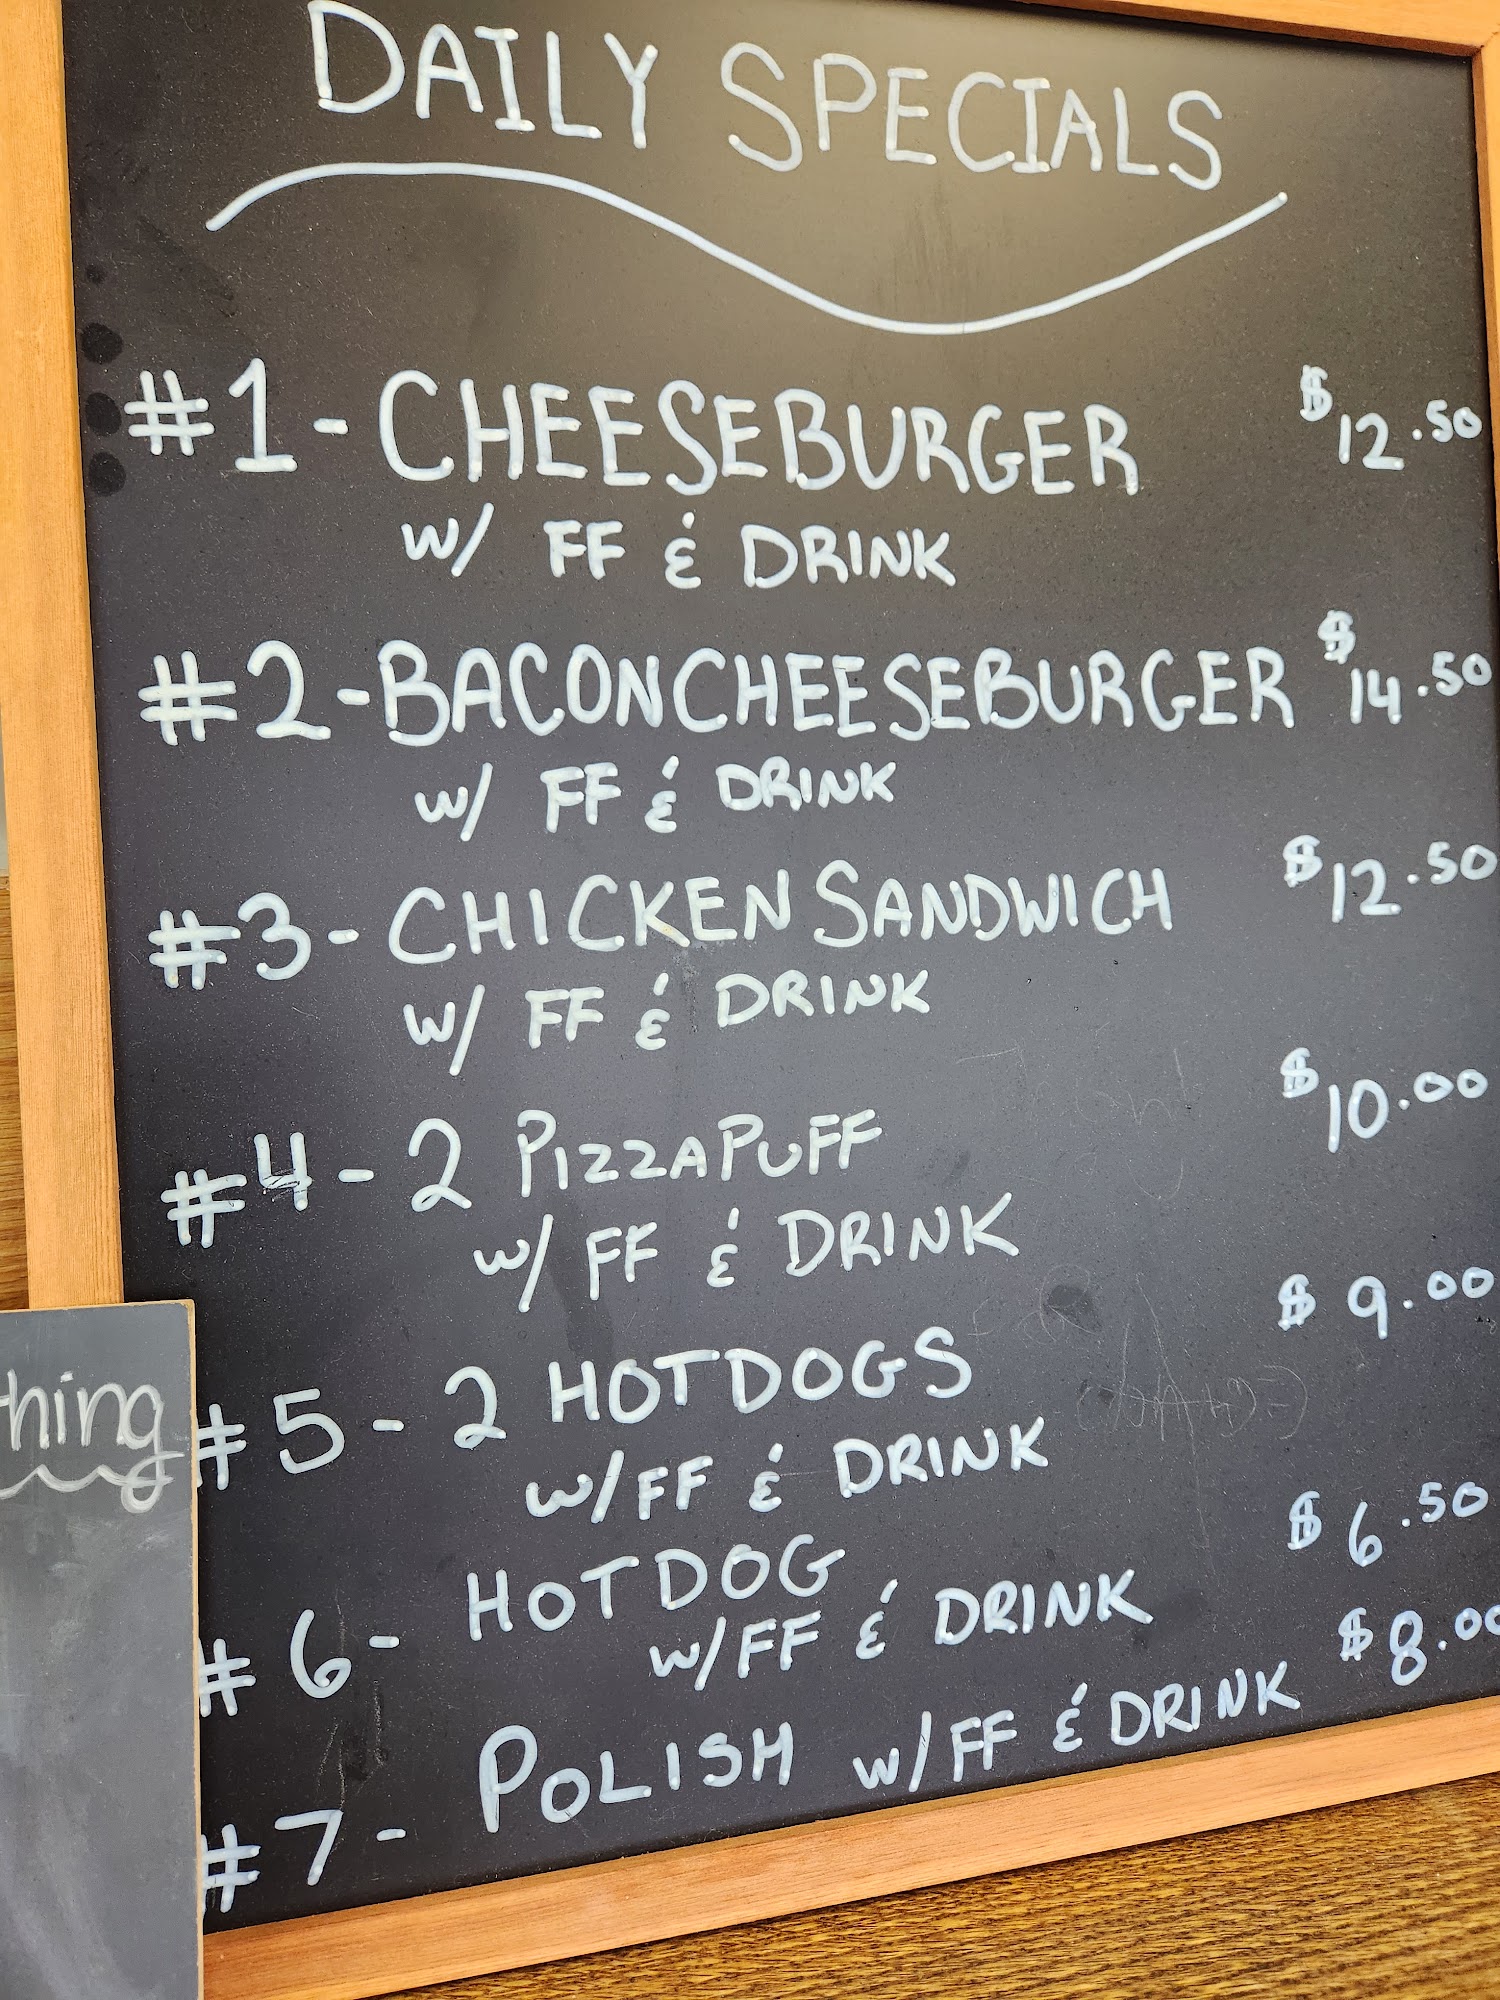 DAILY SPECIALS
#1 - CHEESEBURGER $12.50
W/ FF & DRINK
#2 - BACONCHEESEBURGER $14.50
W/ FF & DRINK
#3 - CHICKEN SANDWICH $12.50
W/ FF & DRINK
#4 - 2 PIZZA PUFF $10.00
W/ FF & DRINK
#5 - 2 HOTDOGS $9.00
W/FF & DRINK
#6 - HOTDOG $6.50
W/FF & DRINK
#7 - POLISH W/FF & DRINK $8.00
hing